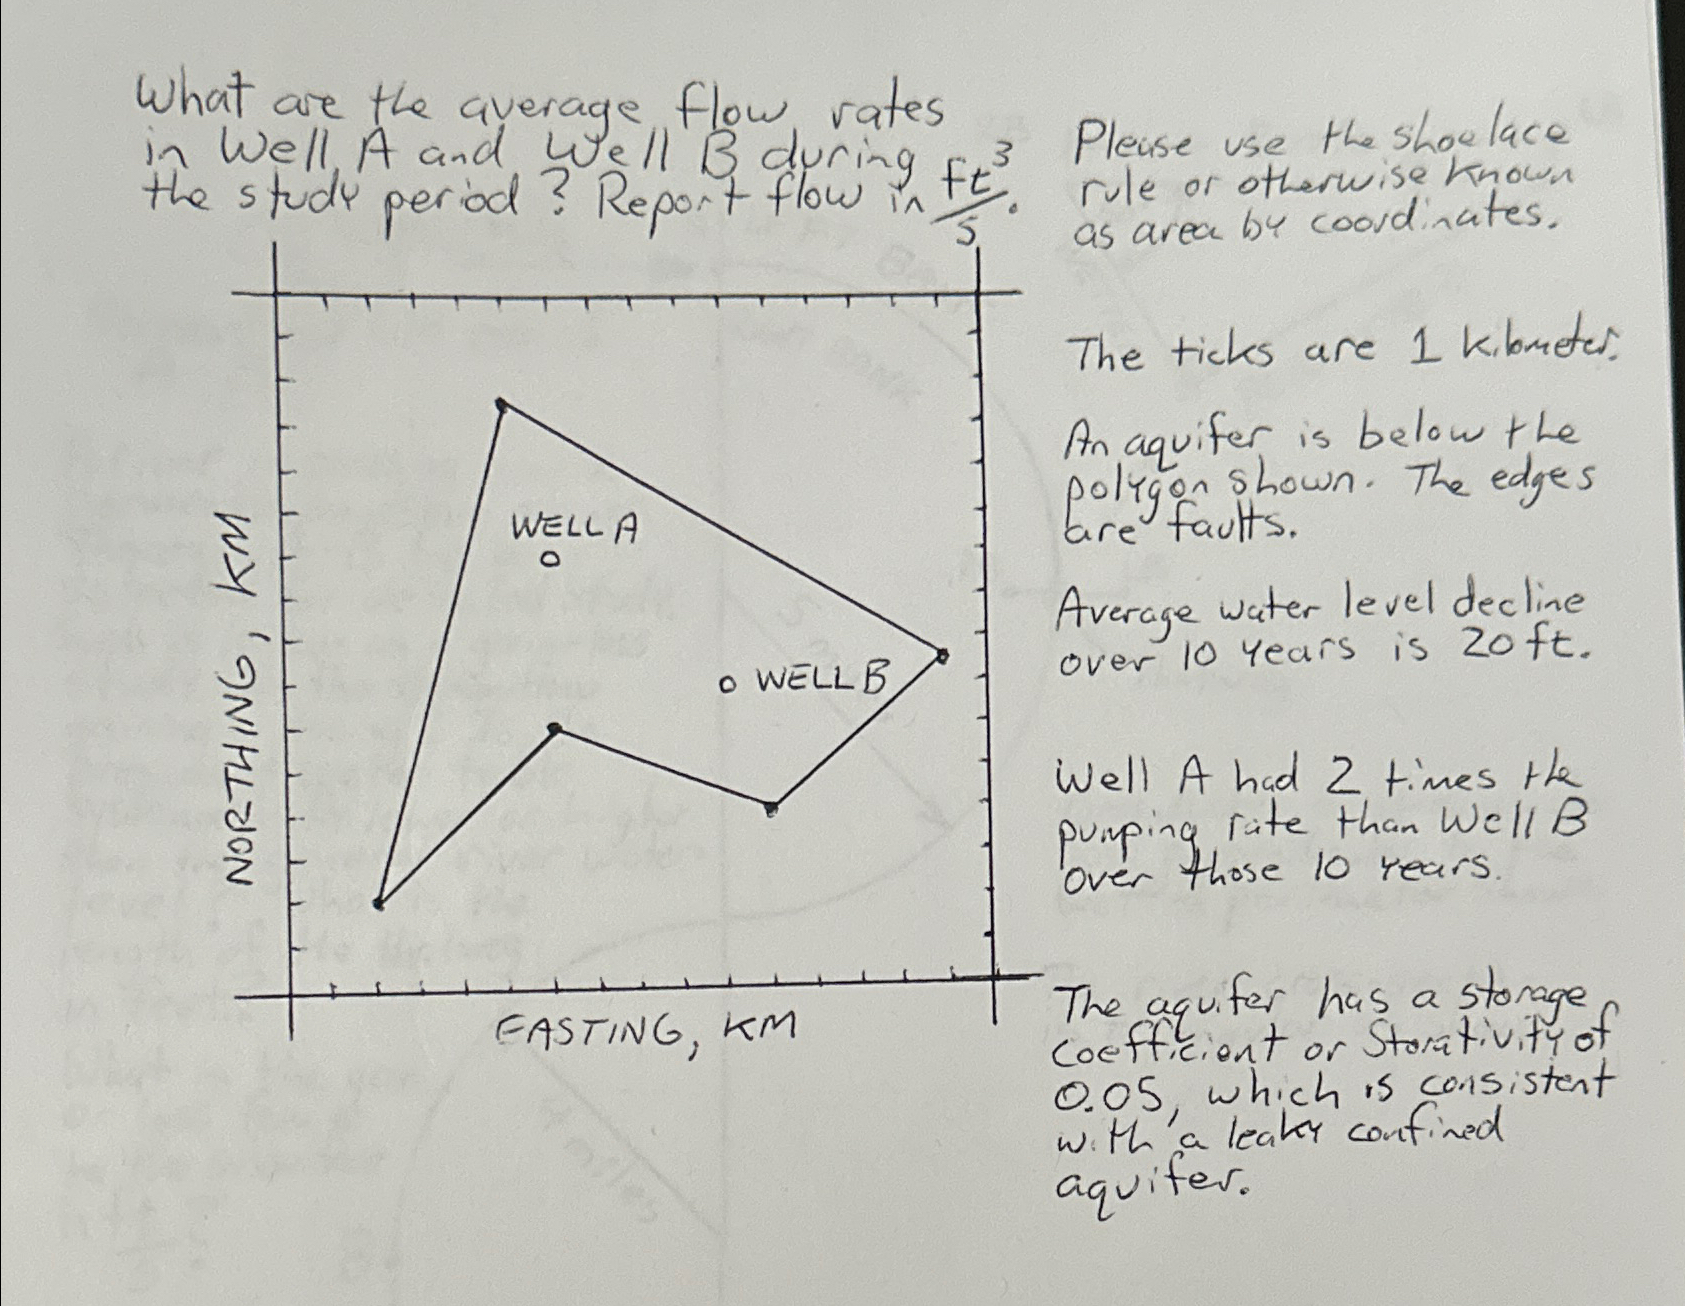 What are the average flow rates
in Well A and Well B during
the study period? Report flow in ft³/s.
Please use the shoelace
rule or otherwise known
as area by coordinates.
The ticks are 1 kilometer.
An aquifer is below the
polygon shown. The edges
are faults.
Average water level decline
over 10 years is 20 ft.
Well A had 2 times the
pumping rate than Well B
over those 10 years.
The aquifer has a storage
coefficient or Storativity of
0.05, which is consistent
with a leaky confined
aquifer.
WELL A
WELL B
NORTHING, KM
EASTING, KM
4 miles